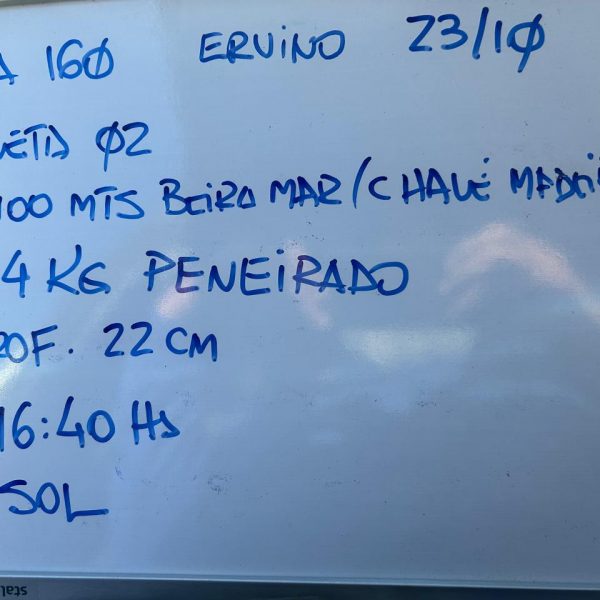 A 160 ERVINO 23/10
LETA 02
100 MTS BEIRA MAR/CHALÉ MADEI
4 KG PENEIRADO
ROF. 22 CM
16:40 Hs
SOL
stal